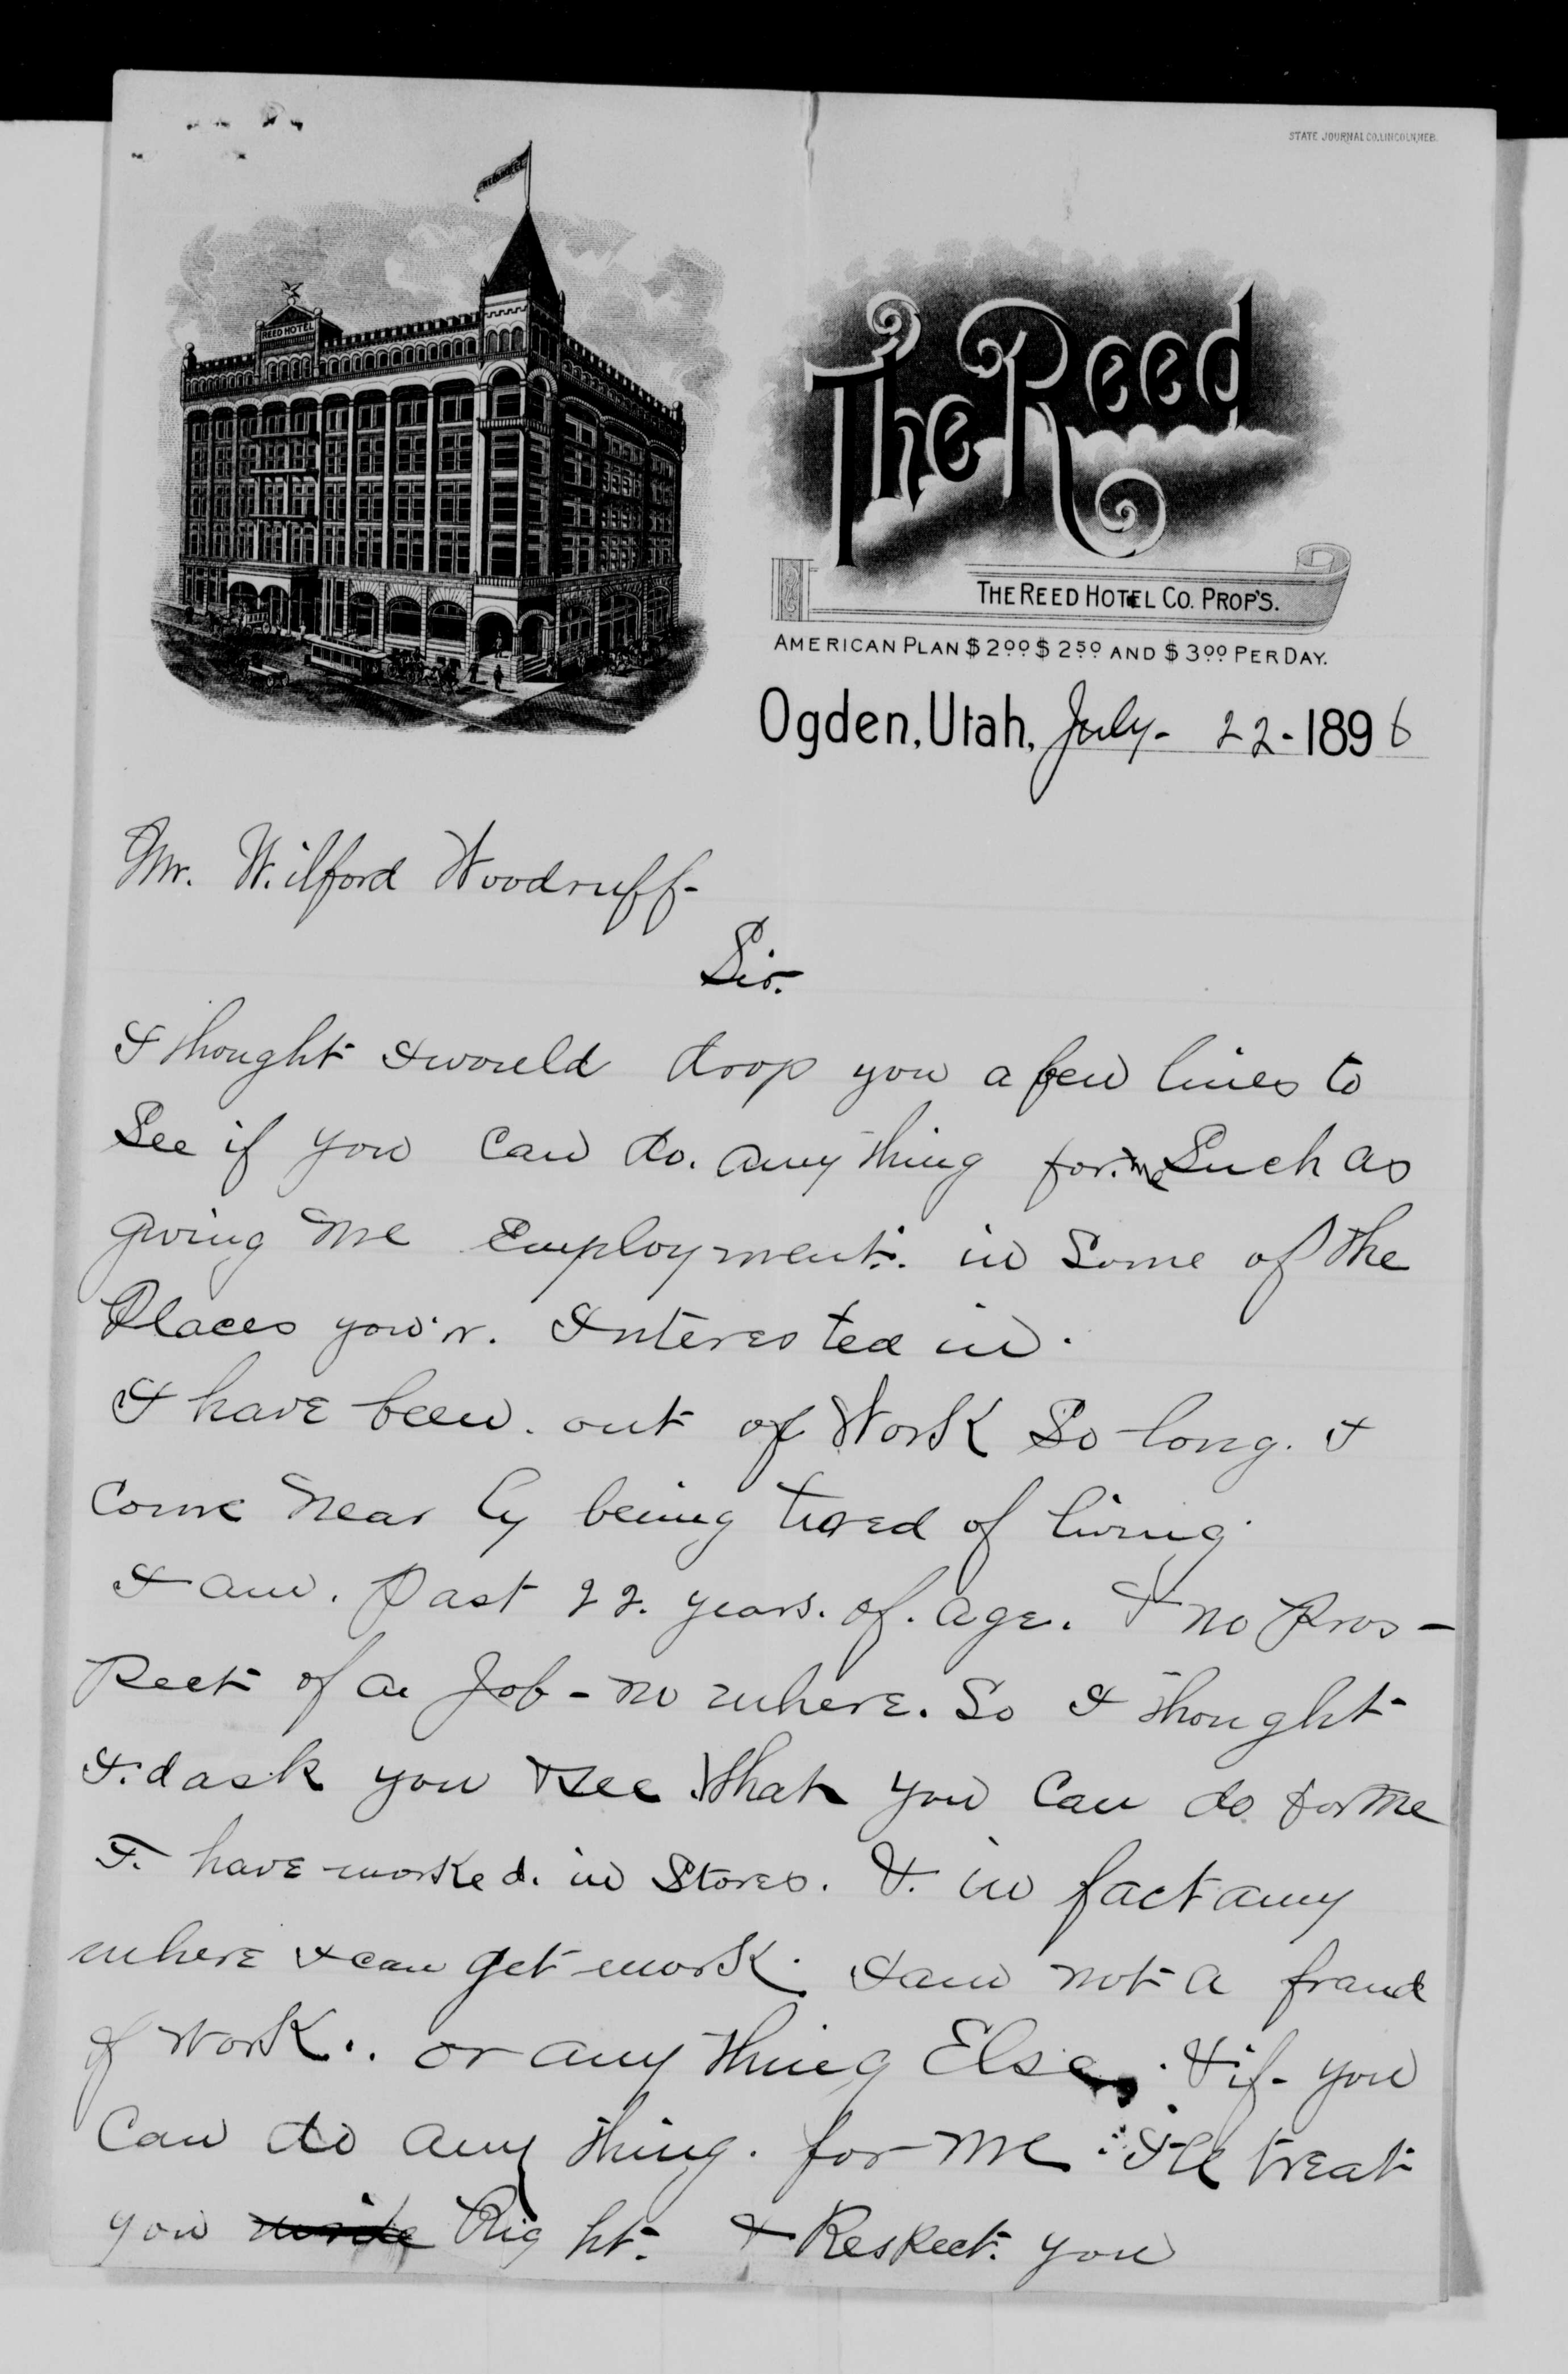 STATE JOURNAL CO. LINCOLN, NEB.
REED HOTEL
The Reed
THE REED HOTEL CO. PROP'S.
AMERICAN PLAN $2.00 $2.50 AND $3.00 PER DAY.
Ogden, Utah, July- 22-1896
Mr. Wilford Woodruff-
Sir.
I thought I would drop you a few lines to
See if you can do. any thing for. me Such as
giving me Employment. in Some of the
Places you'r. Interested in.
I have been. out of Work So long. I
come near ly being tired of living.
I am. Past 22. years. of. age. & no Pros-
Pect of a Job - no where. So I thought
I.d ask you & see What you Can do for me
I. have worked. in Stores. & in fact any
where I can get work. I am not a fraud
of work.. or any thing Else. & if- you
Can do any thing. for me I'll treat
you Rig ht. & Respect. you